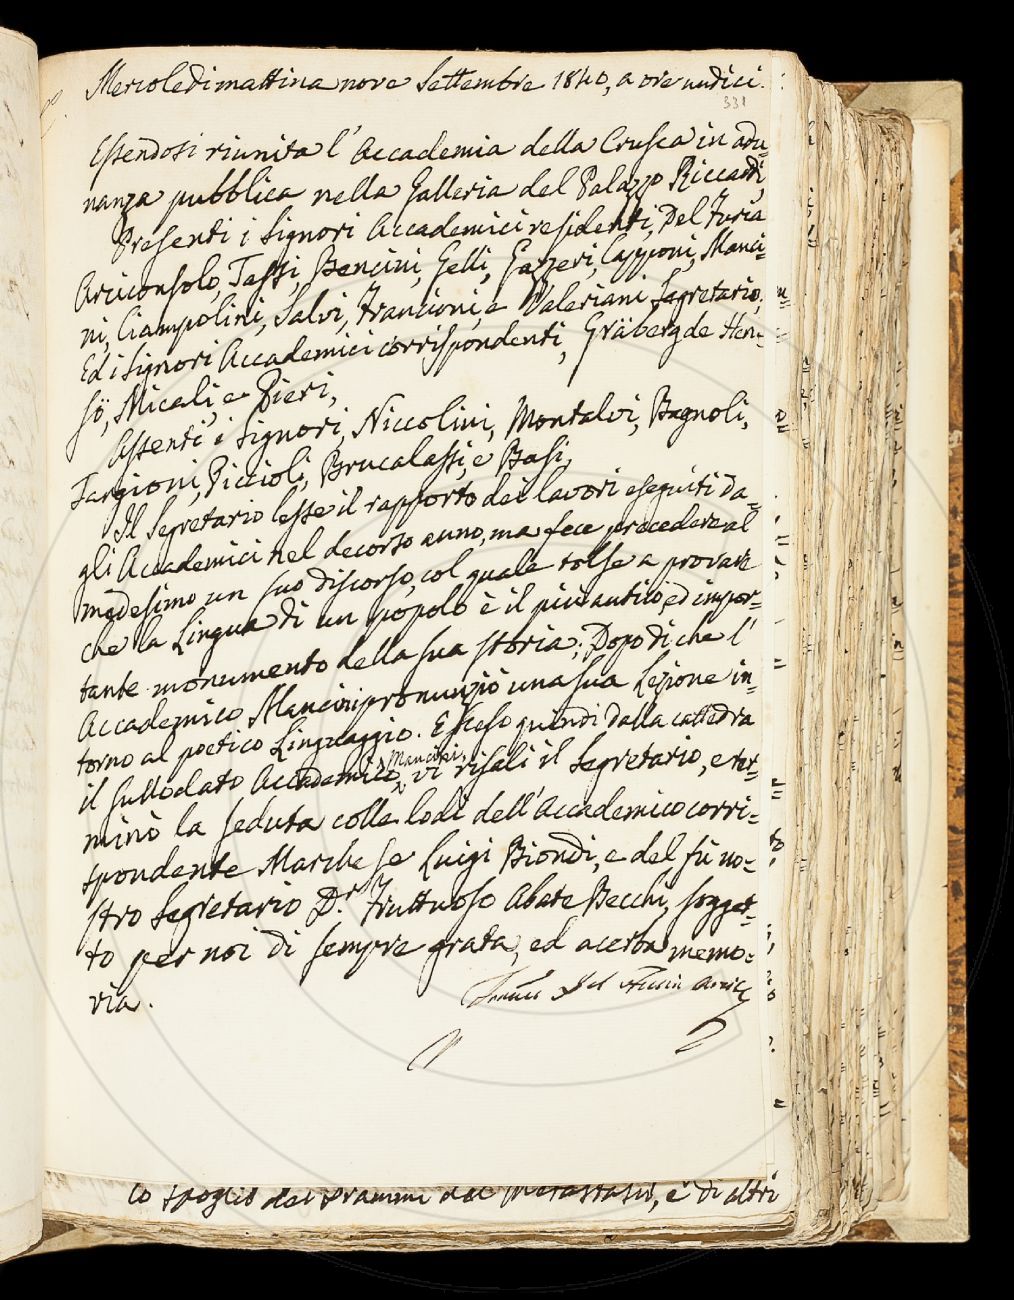 Mercoledi mattina nove Settembre 1840, a ore undici.
331
Essendosi riunita l'Accademia della Crusca in adu=
nanza pubblica nella Galleria del Palazzo Riccardi,
Presenti i Signori Accademici residenti, Del Furia
Arciconsolo, Tassi, Bencini, Gelli, Gazzeri, Capponi, Manci=
ni, Ciampolini, Salvi, Francioni, e Valeriani Segretario;
Ed i Signori Accademici corrispondenti, Gräberg de Hem=
sö, Micali, e Pieri,
Assenti i Signori, Niccolini, Montalvi, Bagnoli,
Targioni, Piccioli, Brucalassi, e Basi,
Il Segretario lesse il rapporto dei lavori eseguiti da=
gli Accademici nel decorso anno, ma fece precedere al
medesimo un suo discorso, col quale tolse a provare
che la Lingua di un popolo è il più antico, ed impor=
tante monumento della sua storia; Dopo di che l'
Accademico Mancini pronunziò una sua Lezione in=
torno al poetico Linguaggio. E sceso quindi dalla cattedra
il sullodato Accademico Mancini, vi risali il Segretario, e ter=
minò la seduta colle lodi dell'Accademico corri=
spondente Marchese Luigi Biondi, e del fù no=
stro Segretario D.r Fruttuoso Abate Becchi, sogget=
to per noi di sempre grata, ed acerba memo=
ria.
Del Furia
lo spoglio dei Drammi del Metastasio, e di altri